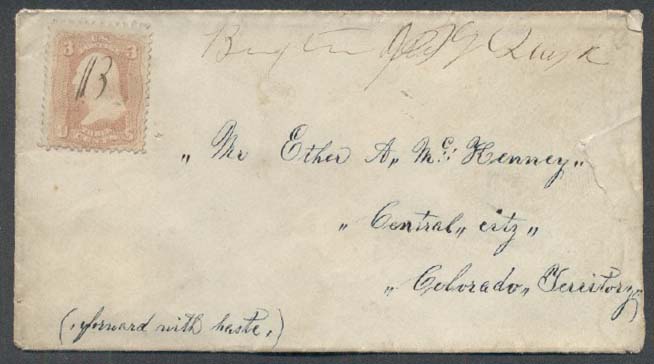 3 U.S. 3
13
„ Mr Ether A,, McKenney „
„ Central „ city „
„ Colorado „ Territory „
(, forward with haste, )